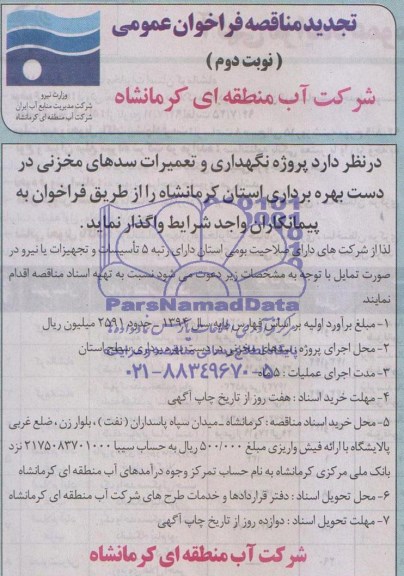 تجدید مناقصه فراخوان عمومی
( نوبت دوم )
شرکت آب منطقه ای کرمانشاه
وزارت نیرو
شرکت مدیریت منابع آب ایران
شرکت آب منطقه ای کرمانشاه
درنظر دارد پروژه نگهداری و تعمیرات سدهای مخزنی در
دست بهره برداری استان کرمانشاه را از طریق فراخوان به
پیمانکاران واجد شرایط واگذار نماید.
لذا از شرکت های دارای صلاحیت بومی استان دارای رتبه ۵ تأسیسات و تجهیزات یا نیرو در
صورت تمایل با توجه به مشخصات زیر دعوت می شود نسبت به تهیه اسناد مناقصه اقدام
نمایند.
۱- مبلغ برآورد اولیه بر اساس فهارس پایه سال ۱۳۹۴ حدود ۲۵۹۱ میلیون ریال
۲- محل اجرای پروژه سدهای مخزنی در دست بهره برداری سطح استان
۳- مدت اجرای عملیات :
۴- مهلت خرید اسناد : هفت روز از تاریخ چاپ آگهی
۵- محل خرید اسناد مناقصه : کرمانشاه ـ میدان سپاه پاسداران ( نفت ) ، بلوار زن ، ضلع غربی
پالایشگاه با ارائه فیش واریزی مبلغ ۵۰۰/۰۰۰ ریال به حساب سیبا ۲۱۷۵۰۸۳۷۰۱۰۰۰ نزد
بانک ملی مرکزی کرمانشاه به نام حساب تمرکز وجوه درآمدهای آب منطقه ای کرمانشاه
۶- محل تحویل اسناد : دفتر قراردادها و خدمات طرح های شرکت آب منطقه ای کرمانشاه
۷- مهلت تحویل اسناد : دوازده روز از تاریخ چاپ آگهی
شرکت آب منطقه ای کرمانشاه
ParsNamadData
۰۲۱-۸۸۳۴۹۶۷۰-۵